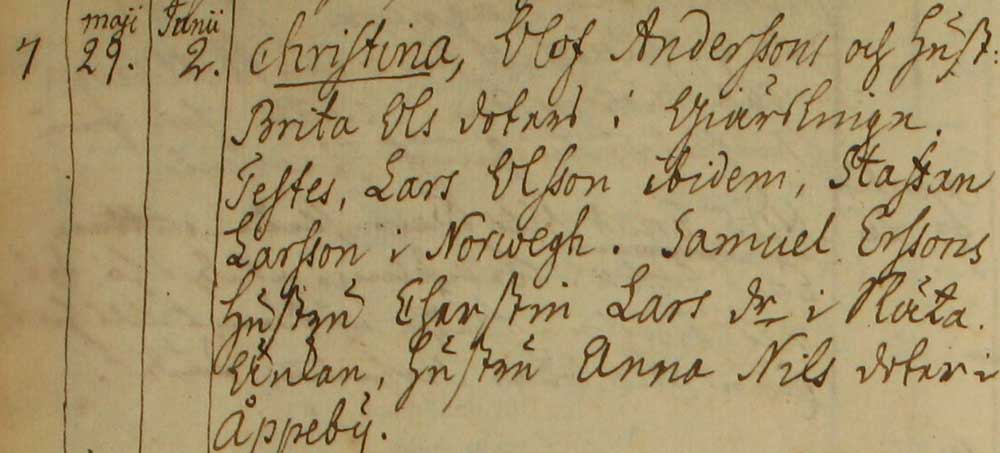 7 maji 29. Junii 2. Christina, Olof Anderssons och Hust:
Brita Ols doters i Giärslinge.
Testes, Lars Olsson ibidem, Staffan
Larsson i Norwegh. Samuel Erssons
hustru Cherstin Lars dr i
Enkan, hustru Anna Nils doter i
Åppeby.